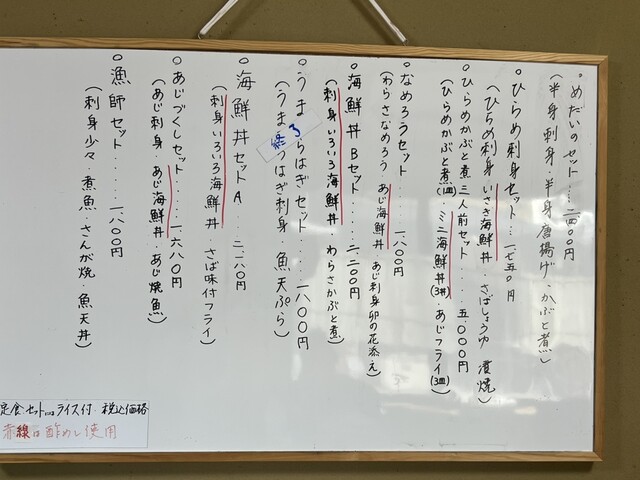 ○めだいのセット……二四〇〇円
(半身刺身・半身唐揚げ・かぶと煮)
○ひらめ刺身セット…一七五〇円
(ひらめ刺身 いさき海鮮丼・さばしょうゆ漬焼)
○ひらめかぶと煮三人前セット……五〇〇〇円
(ひらめかぶと煮(1皿)・ミニ海鮮丼(3丼)・あじフライ(3皿))
○なめろうセット………一八〇〇円
(わらさなめろう あじ海鮮丼 あじ刺身卯の花添え)
○海鮮丼Bセット……二二〇〇円
(刺身いろいろ海鮮丼・わらさかぶと煮)
○うまづらはぎセット……一八〇〇円
(うまづらはぎ刺身・魚天ぷら)
終了
○海鮮丼セットA……二一八〇円
(刺身いろいろ海鮮丼・さば味付フライ)
○あじづくしセット……一六八〇円
(あじ刺身・あじ海鮮丼・あじ焼魚)
○漁師セット……一八〇〇円
(刺身少々・煮魚・さんが焼・魚天丼)
定食セットはライス付 税込価格
赤線は酢めし使用